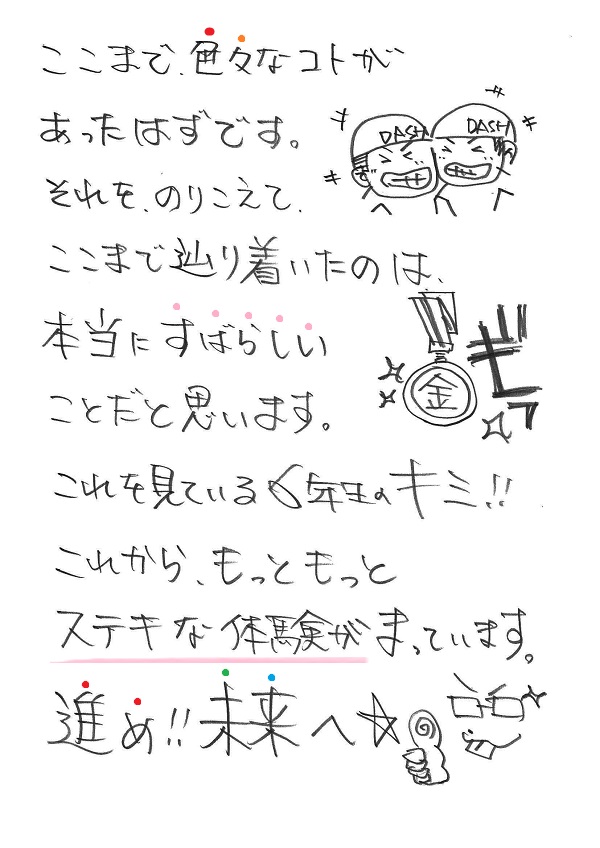 ここまで、色々なコトが
あったはずです。
DASH
DASH
それを、のりこえて、
ここまで辿り着いたのは、
本当にすばらしい
金
ことだと思います。
これを見ている6年生のキミ!!
これから、もっともっと
ステキな体験がまっています。
進め!!未来へ☆